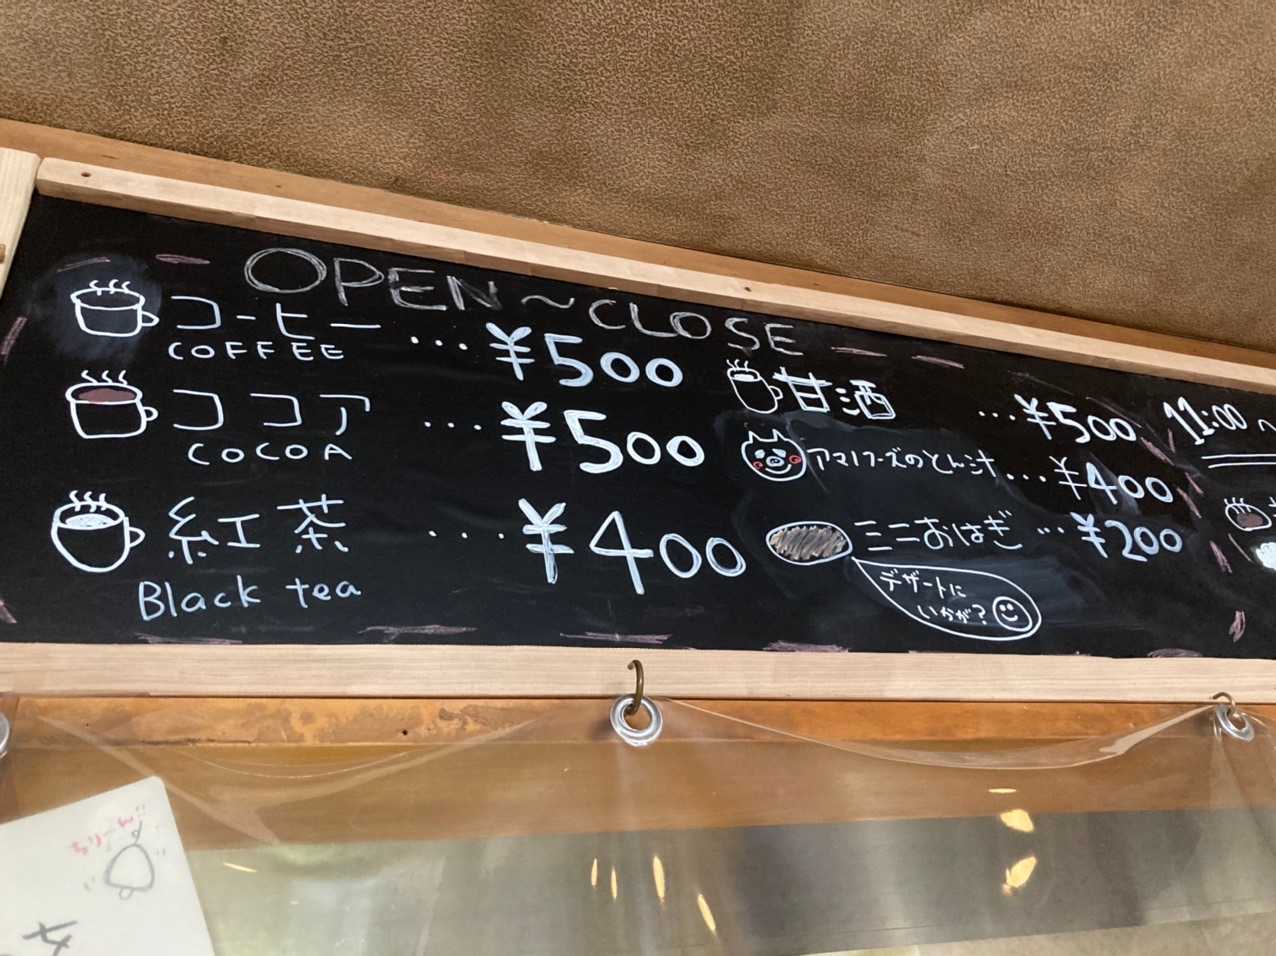 OPEN~CLOSE
コーヒー ... ¥500
COFFEE
ココア ... ¥500
COCOA
紅茶 .... ¥400
Black tea
甘酒 ... ¥500
アマノフーズのとん汁 ... ¥400
ミニおはぎ ... ¥200
デザートに
いかが?
11:00~